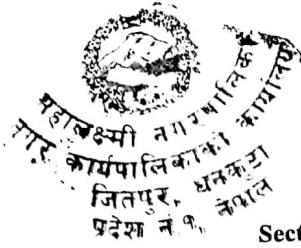 महालक्ष्मी नगरपालिका
नगर कार्यपालिकाको कार्यालय
जितपुर, धनकुटा
प्रदेश नं. १, नेपाल
Sect